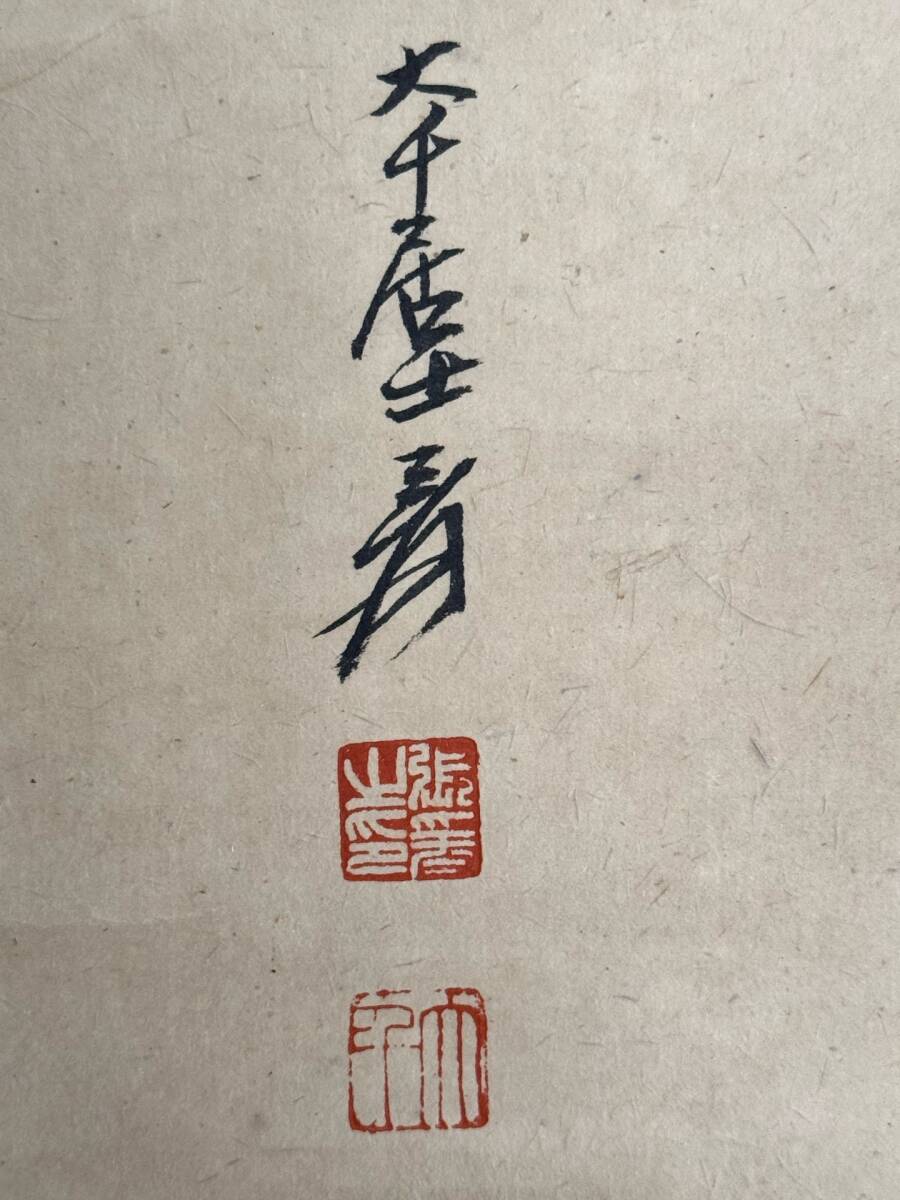 大千居士爰
張爰之印
大千